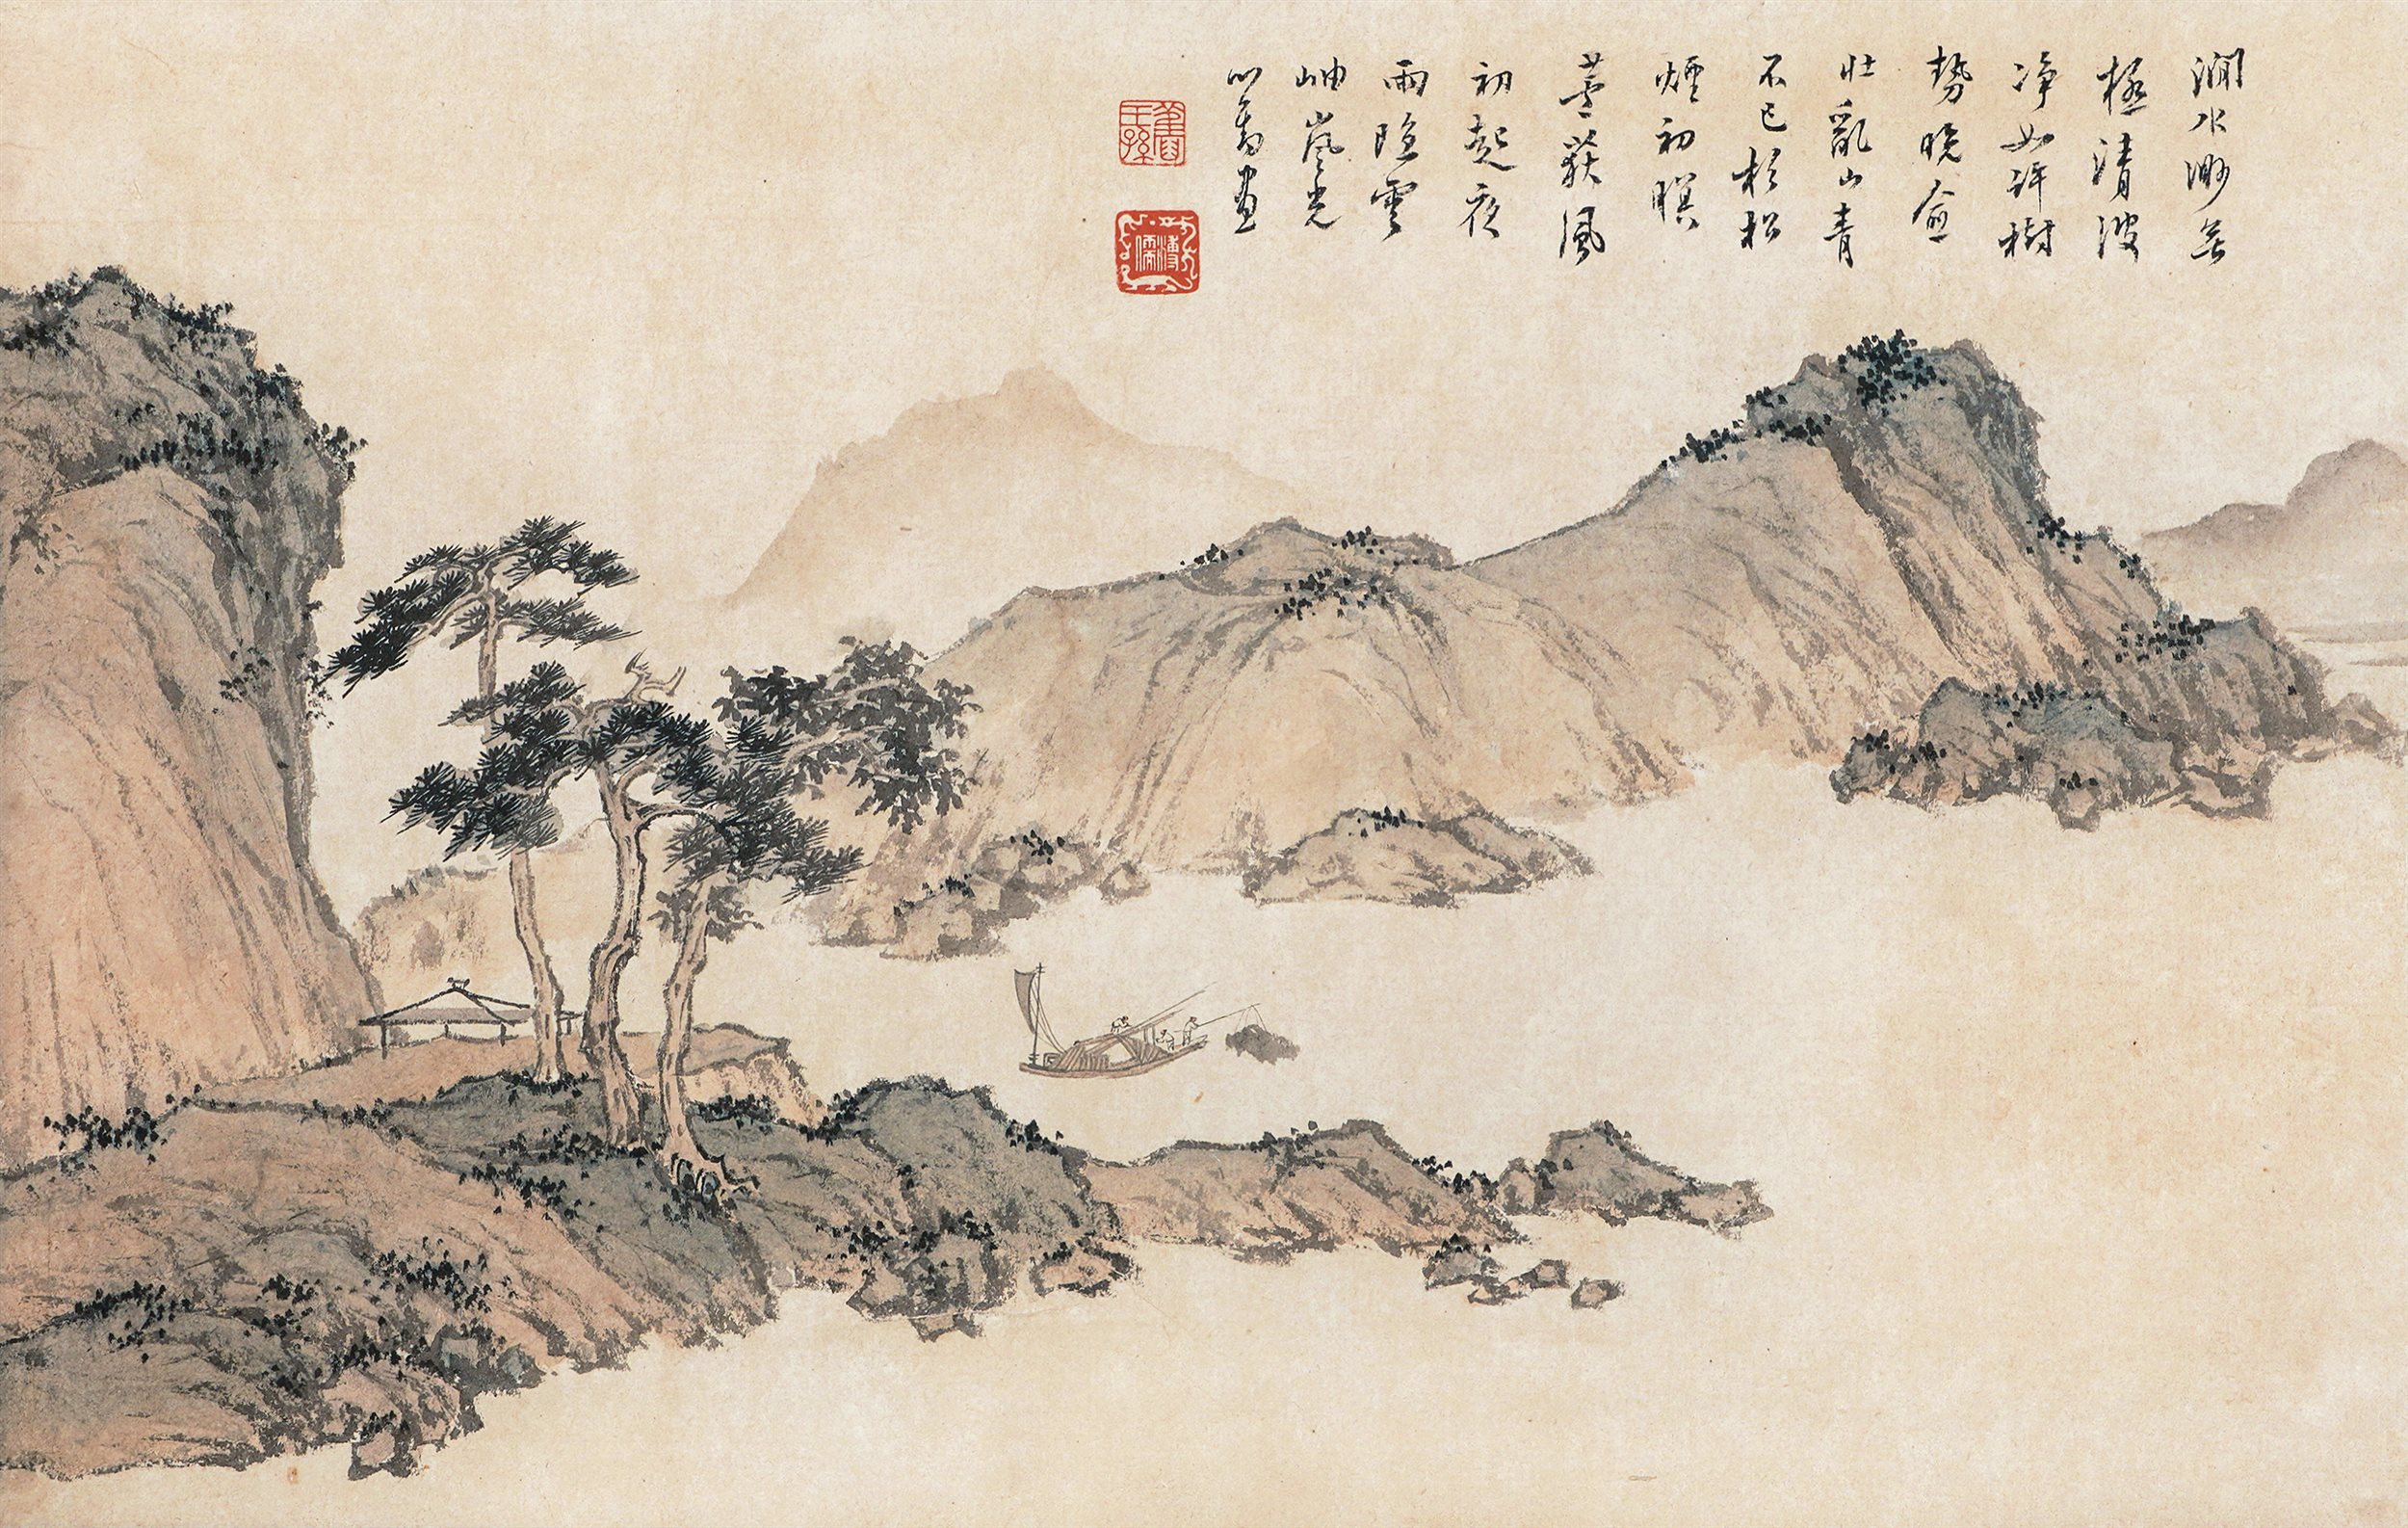 澗水渺無
極清波
淨如澣樹
勢晚愈
壯亂山青
不已杉松
煙初暝
葦荻風
初起夜
雨隱雲
岫嵐光
心畬畫
舊王孫
溥儒